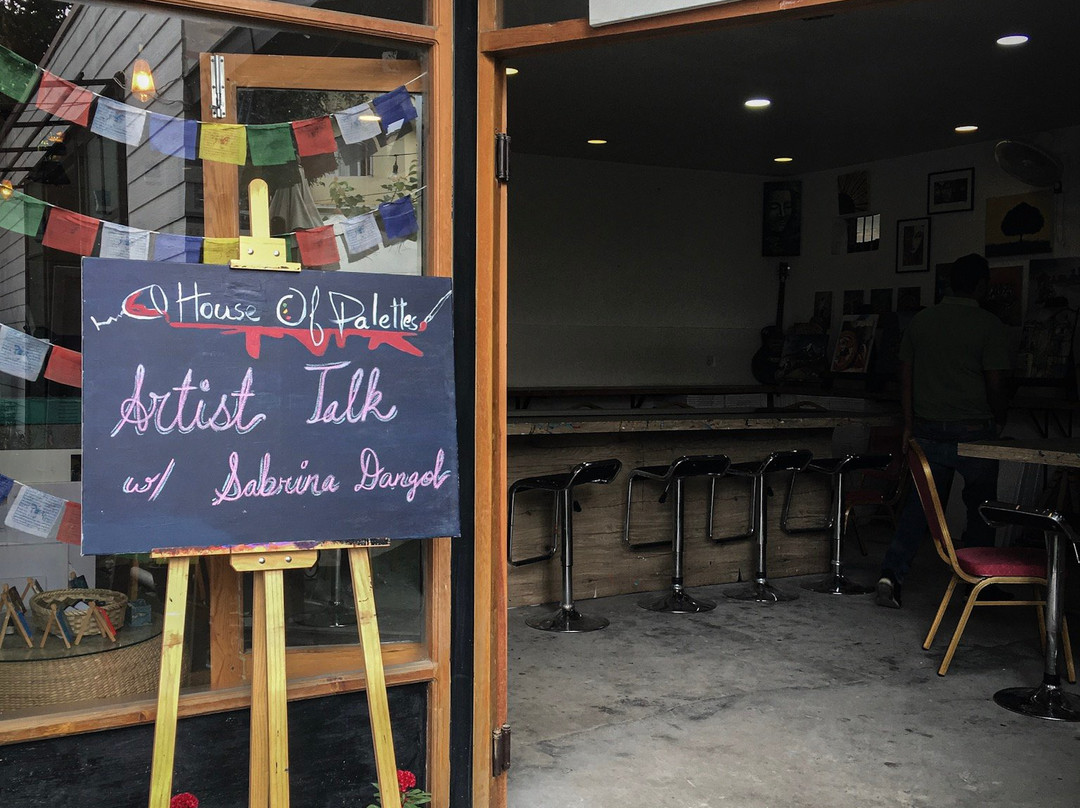 House Of Palettes
Artist Talk
w/ Sabrina Dangol